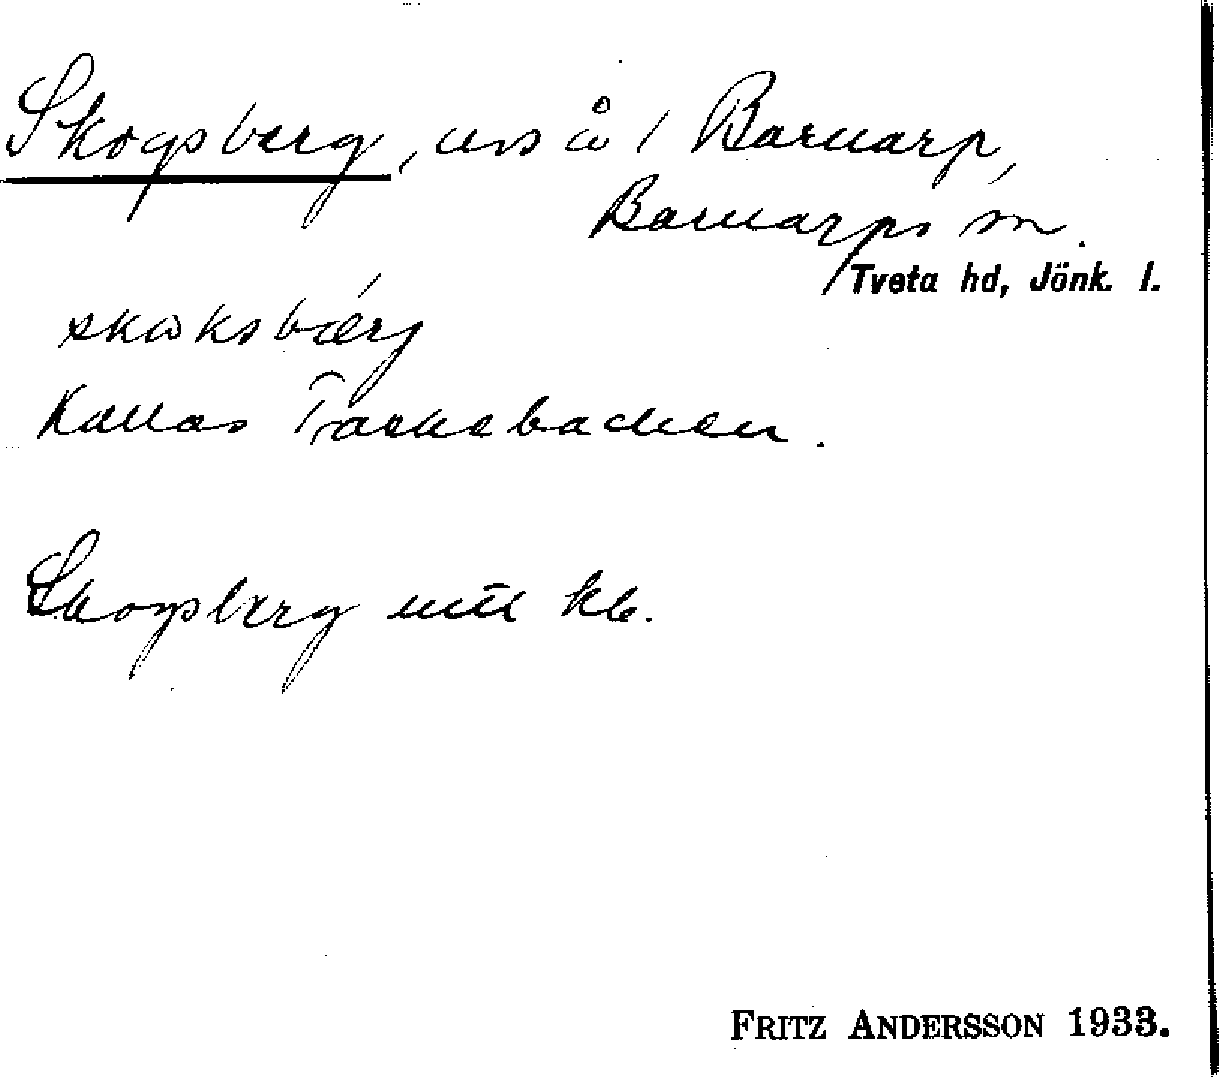 Skogsberg, urs å 1 Barnarp,
Barnarps sn.
Tveta hd, Jönk. l.
skωksbǽrj
Kallas
Skogsberg mtl kb.
FRITZ ANDERSSON 1933.